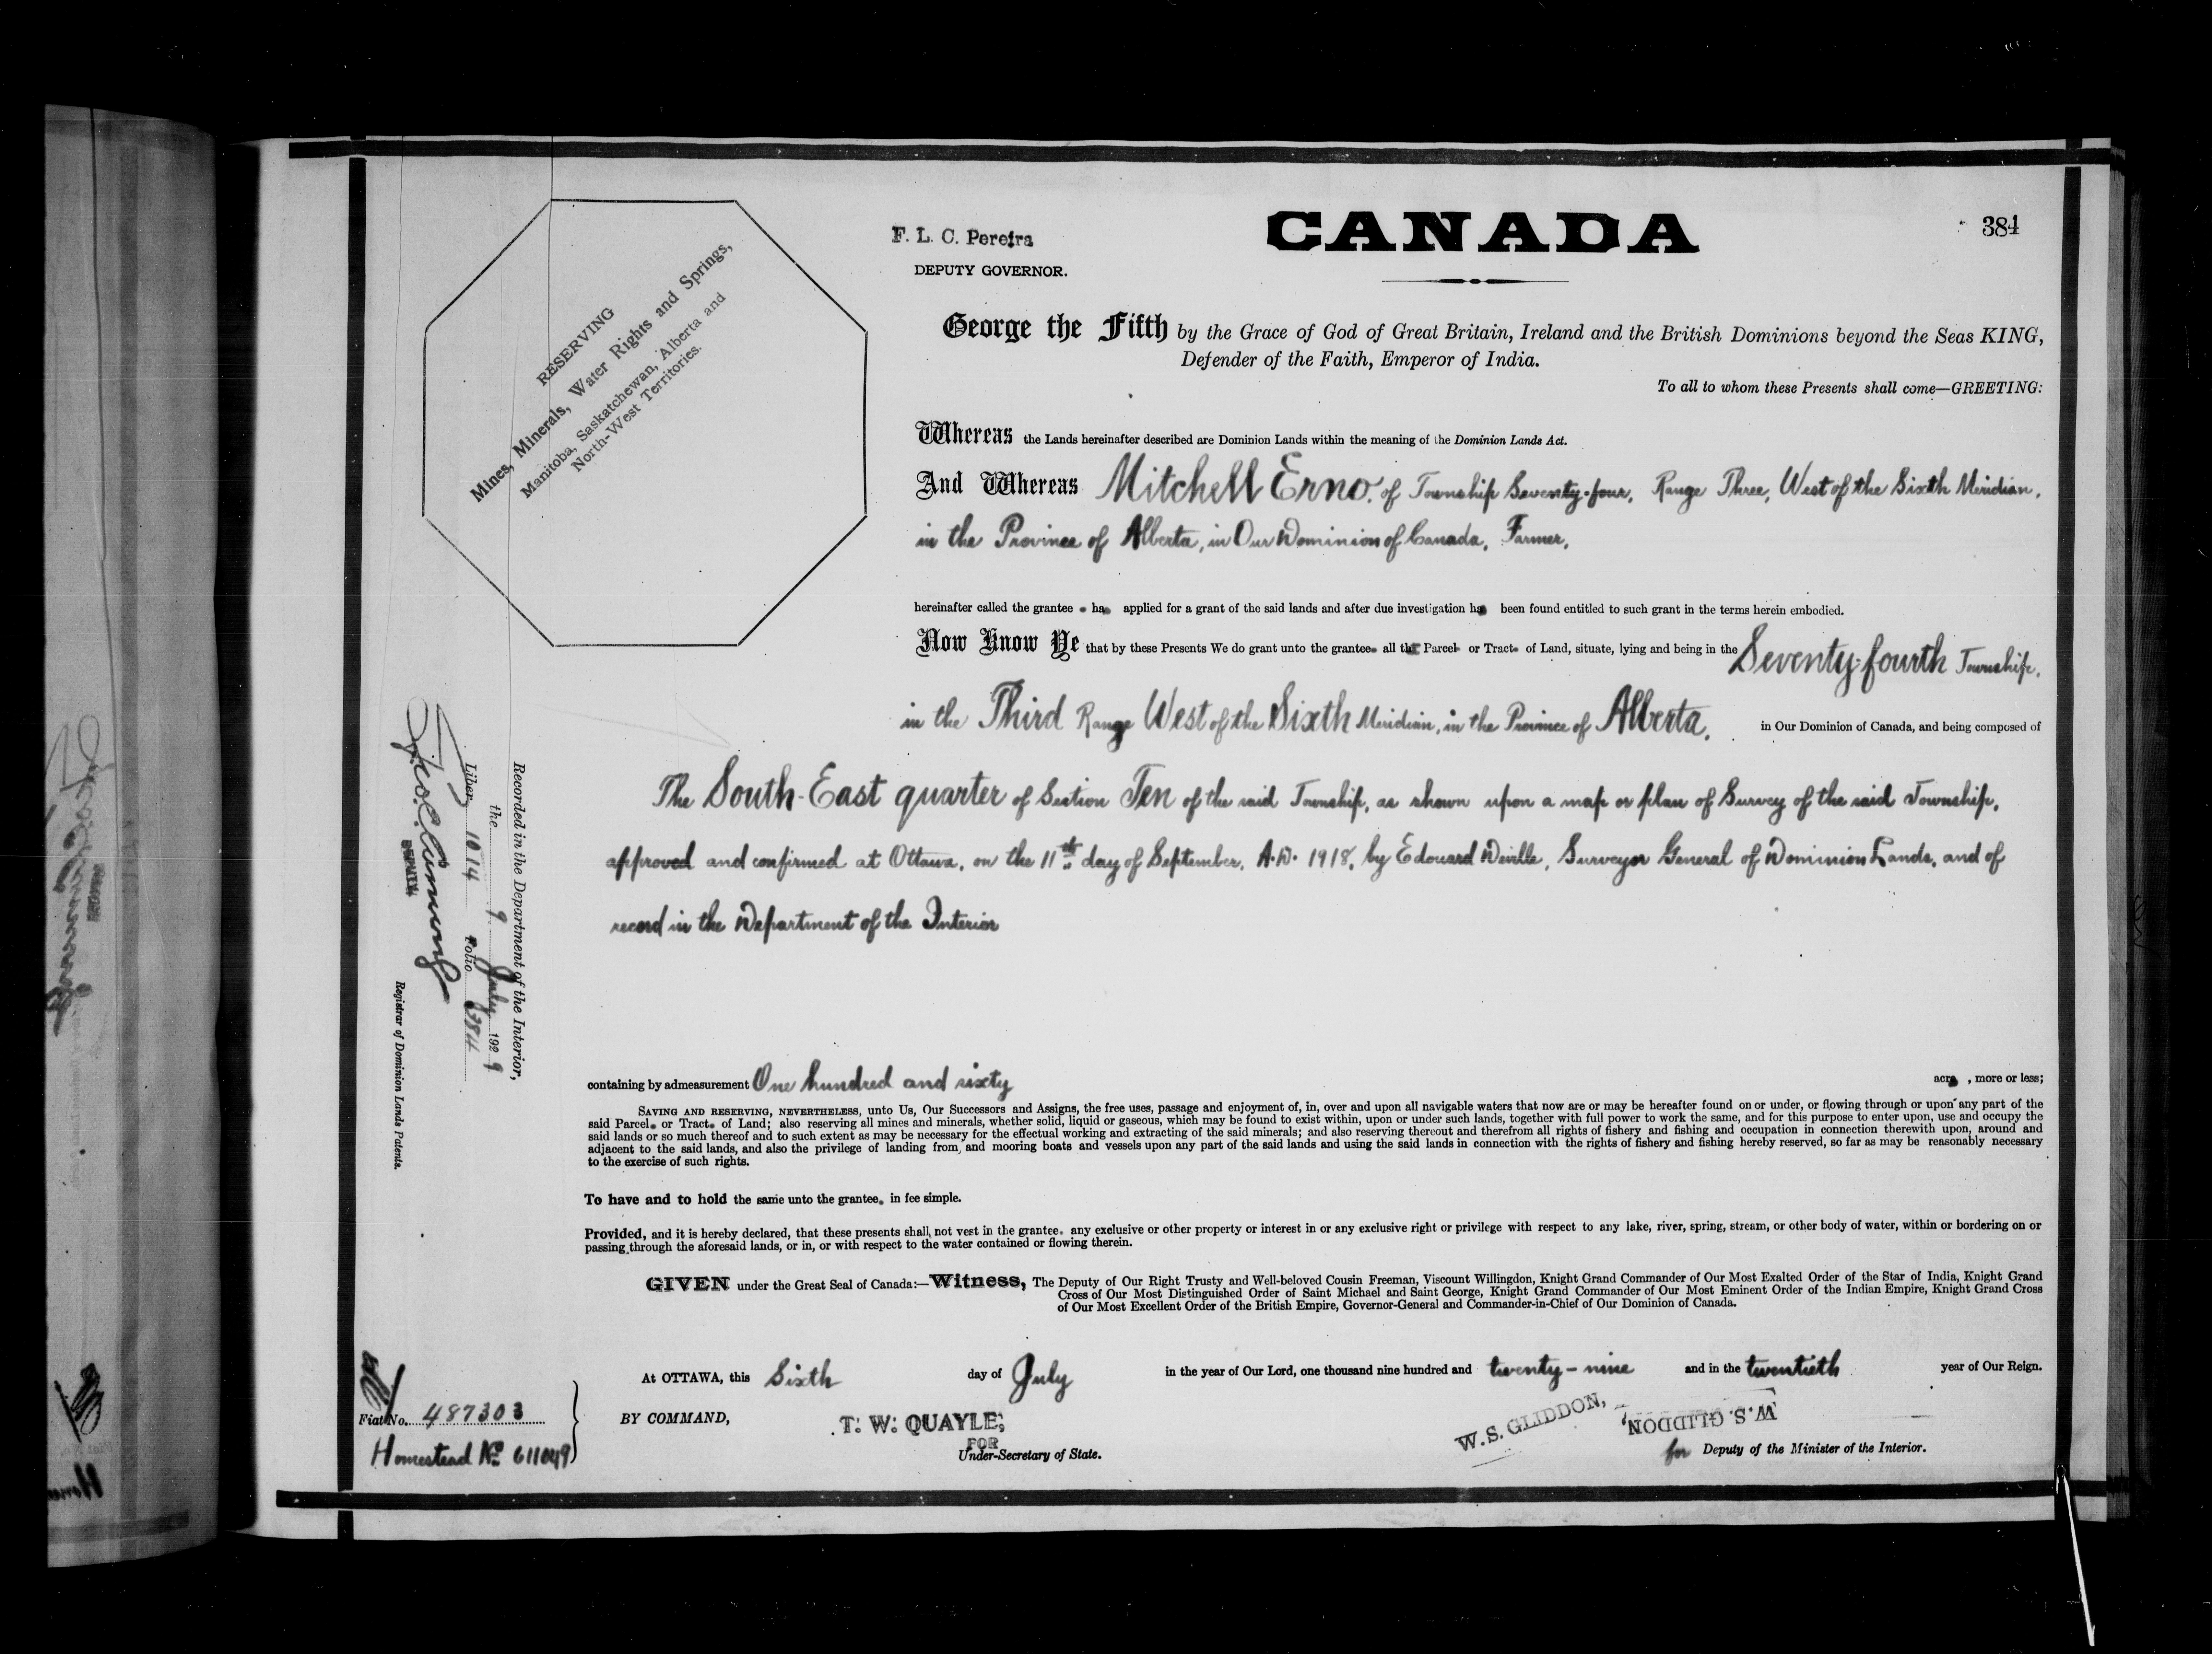 384
CANADA
F. L. C. Pereira
DEPUTY GOVERNOR.
RESERVING
Mines, Minerals, Water Rights and Springs,
Manitoba, Saskatchewan, Alberta and
North-West Territories.
George the Fifth by the Grace of God of Great Britain, Ireland and the British Dominions beyond the Seas KING,
Defender of the Faith, Emperor of India.
To all to whom these Presents shall come—GREETING:
Whereas the Lands hereinafter described are Dominion Lands within the meaning of the Dominion Lands Act.
And Whereas Mitchell Erno, of Township Seventy-four, Range Three, West of the Sixth Meridian,
in the Province of Alberta, in Our Dominion of Canada, Farmer,
hereinafter called the grantee has applied for a grant of the said lands and after due investigation has been found entitled to such grant in the terms herein embodied.
Now Know Ye that by these Presents We do grant unto the grantee all that Parcel or Tract of Land, situate, lying and being in the Seventy-fourth Township,
in the Third Range West of the Sixth Meridian, in the Province of Alberta, in Our Dominion of Canada, and being composed of
The South-East quarter of Section Ten of the said Township, as shown upon a map or plan of Survey of the said Township,
approved and confirmed at Ottawa, on the 11th day of September, A.D. 1918, by Edouard Deville, Surveyor General of Dominion Lands, and of
record in the Department of the Interior
containing by admeasurement One hundred and sixty acres, more or less;
SAVING AND RESERVING, NEVERTHELESS, unto Us, Our Successors and Assigns, the free uses, passage and enjoyment of, in, over and upon all navigable waters that now are or may be hereafter found on or under, or flowing through or upon any part of the
said Parcel or Tract of Land; also reserving all mines and minerals, whether solid, liquid or gaseous, which may be found to exist within, upon or under such lands, together with full power to work the same, and for this purpose to enter upon, use and occupy the
said lands or so much thereof and to such extent as may be necessary for the effectual working and extracting of the said minerals; and also reserving thereout and therefrom all rights of fishery and fishing and occupation in connection therewith upon, around and
adjacent to the said lands, and also the privilege of landing from, and mooring boats and vessels upon any part of the said lands and using the said lands in connection with the rights of fishery and fishing hereby reserved, so far as may be reasonably necessary
to the exercise of such rights.
To have and to hold the same unto the grantee, in fee simple.
Provided, and it is hereby declared, that these presents shall not vest in the grantee, any exclusive or other property or interest in or any exclusive right or privilege with respect to any lake, river, spring, stream, or other body of water, within or bordering on or
passing through the aforesaid lands, or in, or with respect to the water contained or flowing therein.
GIVEN under the Great Seal of Canada:—Witness, The Deputy of Our Right Trusty and Well-beloved Cousin Freeman, Viscount Willingdon, Knight Grand Commander of Our Most Exalted Order of the Star of India, Knight Grand
Cross of Our Most Distinguished Order of Saint Michael and Saint George, Knight Grand Commander of Our Most Eminent Order of the Indian Empire, Knight Grand Cross
of Our Most Excellent Order of the British Empire, Governor-General and Commander-in-Chief of Our Dominion of Canada.
At OTTAWA, this Sixth day of July in the year of Our Lord, one thousand nine hundred and twenty-nine and in the twentieth year of Our Reign.
BY COMMAND,
T. W. QUAYLE,
FOR
Under-Secretary of State.
W. S. GLIDDON,
W. S. GLIDDON,
for Deputy of the Minister of the Interior.
Fiat No. 487303
Homestead No. 611049
Recorded in the Department of the Interior,
the 9 July 1929
Liber 1014 Folio 384
DEPUTY
Registrar of Dominion Lands Patents.